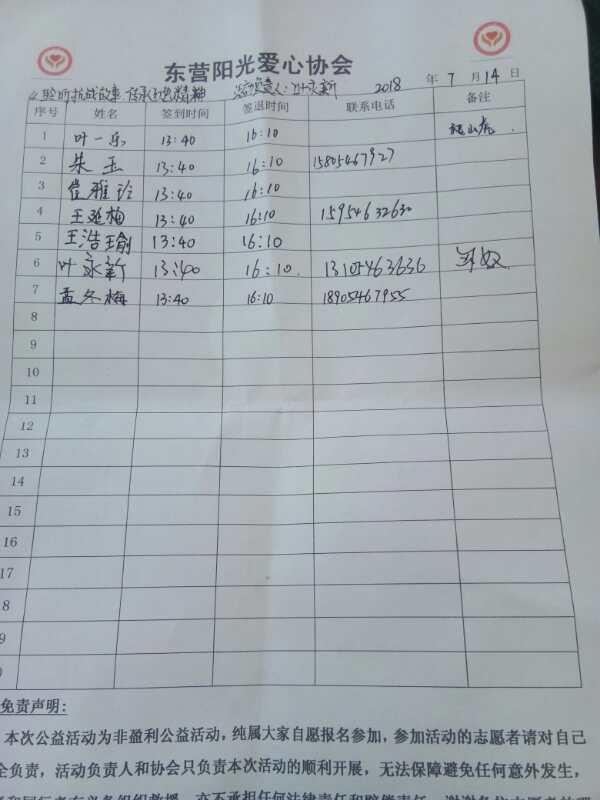 东营阳光爱心协会
《聆听抗战故事 传承红色精神 活动负责人:叶永新 2018 年 7 月 14 日
序号 姓名 签到时间 签退时间 联系电话 备注
1 叶一乐 13:40 16:10
2 朱玉 13:40 16:10 15805467927
3 崔雅玲 13:40 16:10
4 王延梅 13:40 16:10 15954632630
5 王浩瑜 13:40 16:10
6 叶永新 13:40 16:10. 13105463636
7 孟冬梅 13:40 16:10 18905467955
8
9
10
11
12
13
14
15
16
17
8
9
免责声明:
本次公益活动为非盈利公益活动,纯属大家自愿报名参加,参加活动的志愿者请对自己
全负责,活动负责人和协会只负责本次活动的顺利开展,无法保障避免任何意外发生,